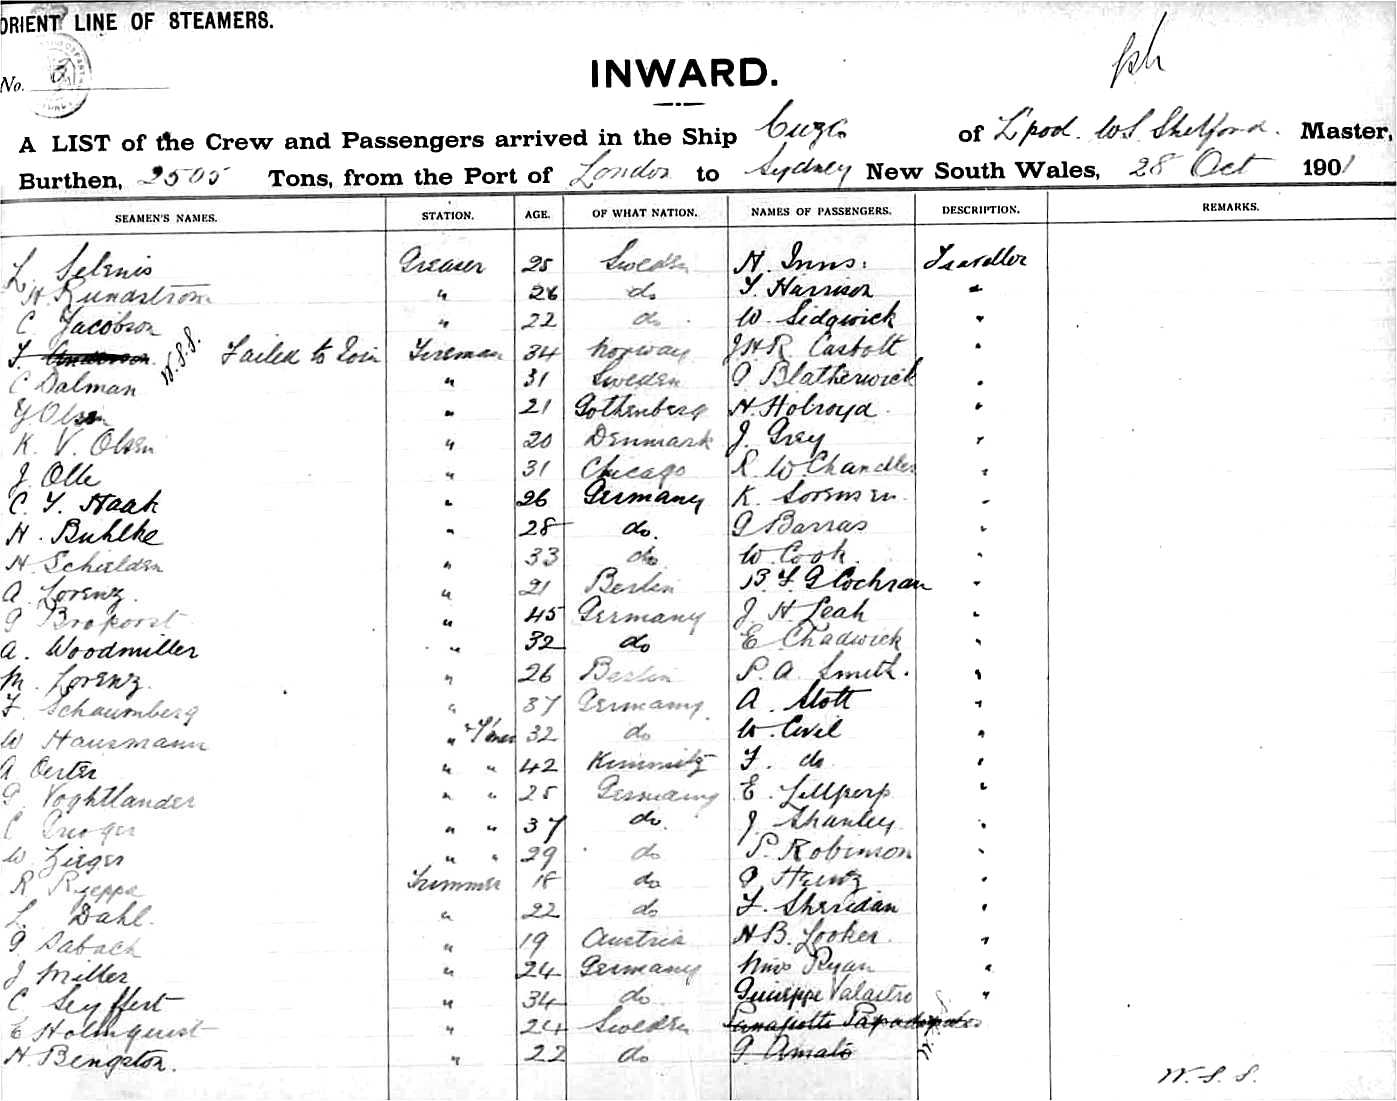 ORIENT LINE OF STEAMERS.
No.
INWARD.
A LIST of the Crew and Passengers arrived in the Ship Cuzco of L'pool. W S Shelford. Master,
Burthen, 2505 Tons, from the Port of London to Sydney New South Wales, 28 Oct 1901
SEAMEN'S NAMES. STATION. AGE. OF WHAT NATION. NAMES OF PASSENGERS. DESCRIPTION. REMARKS.
L. Selenis Greaser 25 Sweden H. Inns. Traveller
H. Rundstrom " 26 do F. Harrison "
C. Jacobson " 22 do. W. Sidgwick "
F. Anderson W.S.S. Failed to Join Fireman 34 Norway J H R Casbolt "
C Dalman " 31 Sweden G Blatherwick "
Y Olsen " 21 Gothenberg H. Holroyd "
K. V. Olsen " 20 Denmark J. Grey "
J Olle " 31 Chicago R. W Chandler "
C. F. Haak " 26 Germany K. Sorensen "
H. Buhlke " 28 do. G Barras "
H Schielden " 33 do W. Cook. "
A Lorenz. " 21 Berlin B. F. G Cochran "
G " 45 Germany J. H. Leah "
A. Woodmiller " 32 do E Chadwick "
M. Lorenz. " 26 Berlin P. A. Smith. "
F. Schaumberg " 37 Germany. A. Stott "
W Hausmann " F'man 32 do W. Civil "
A Oerter " " 42 F. do "
G Voghtlander " " 25 Germany E. "
C " " 37 do. J. Shanley "
W Zieger " " 29 do P. Robinson "
R Trimmer 18 do "
L. Dahl. " 22 do F. Sheridan "
G Sabach " 19 Austria H B. Looker. "
J Miller " 24 Germany Miss Ryan "
C Seyffert " 34 do. Guiseppe Valastro "
E Holmquist " 24 Sweden Panajiotti Papadopulos
H. Bengston. " 22 do G. Amato
W. S. S.